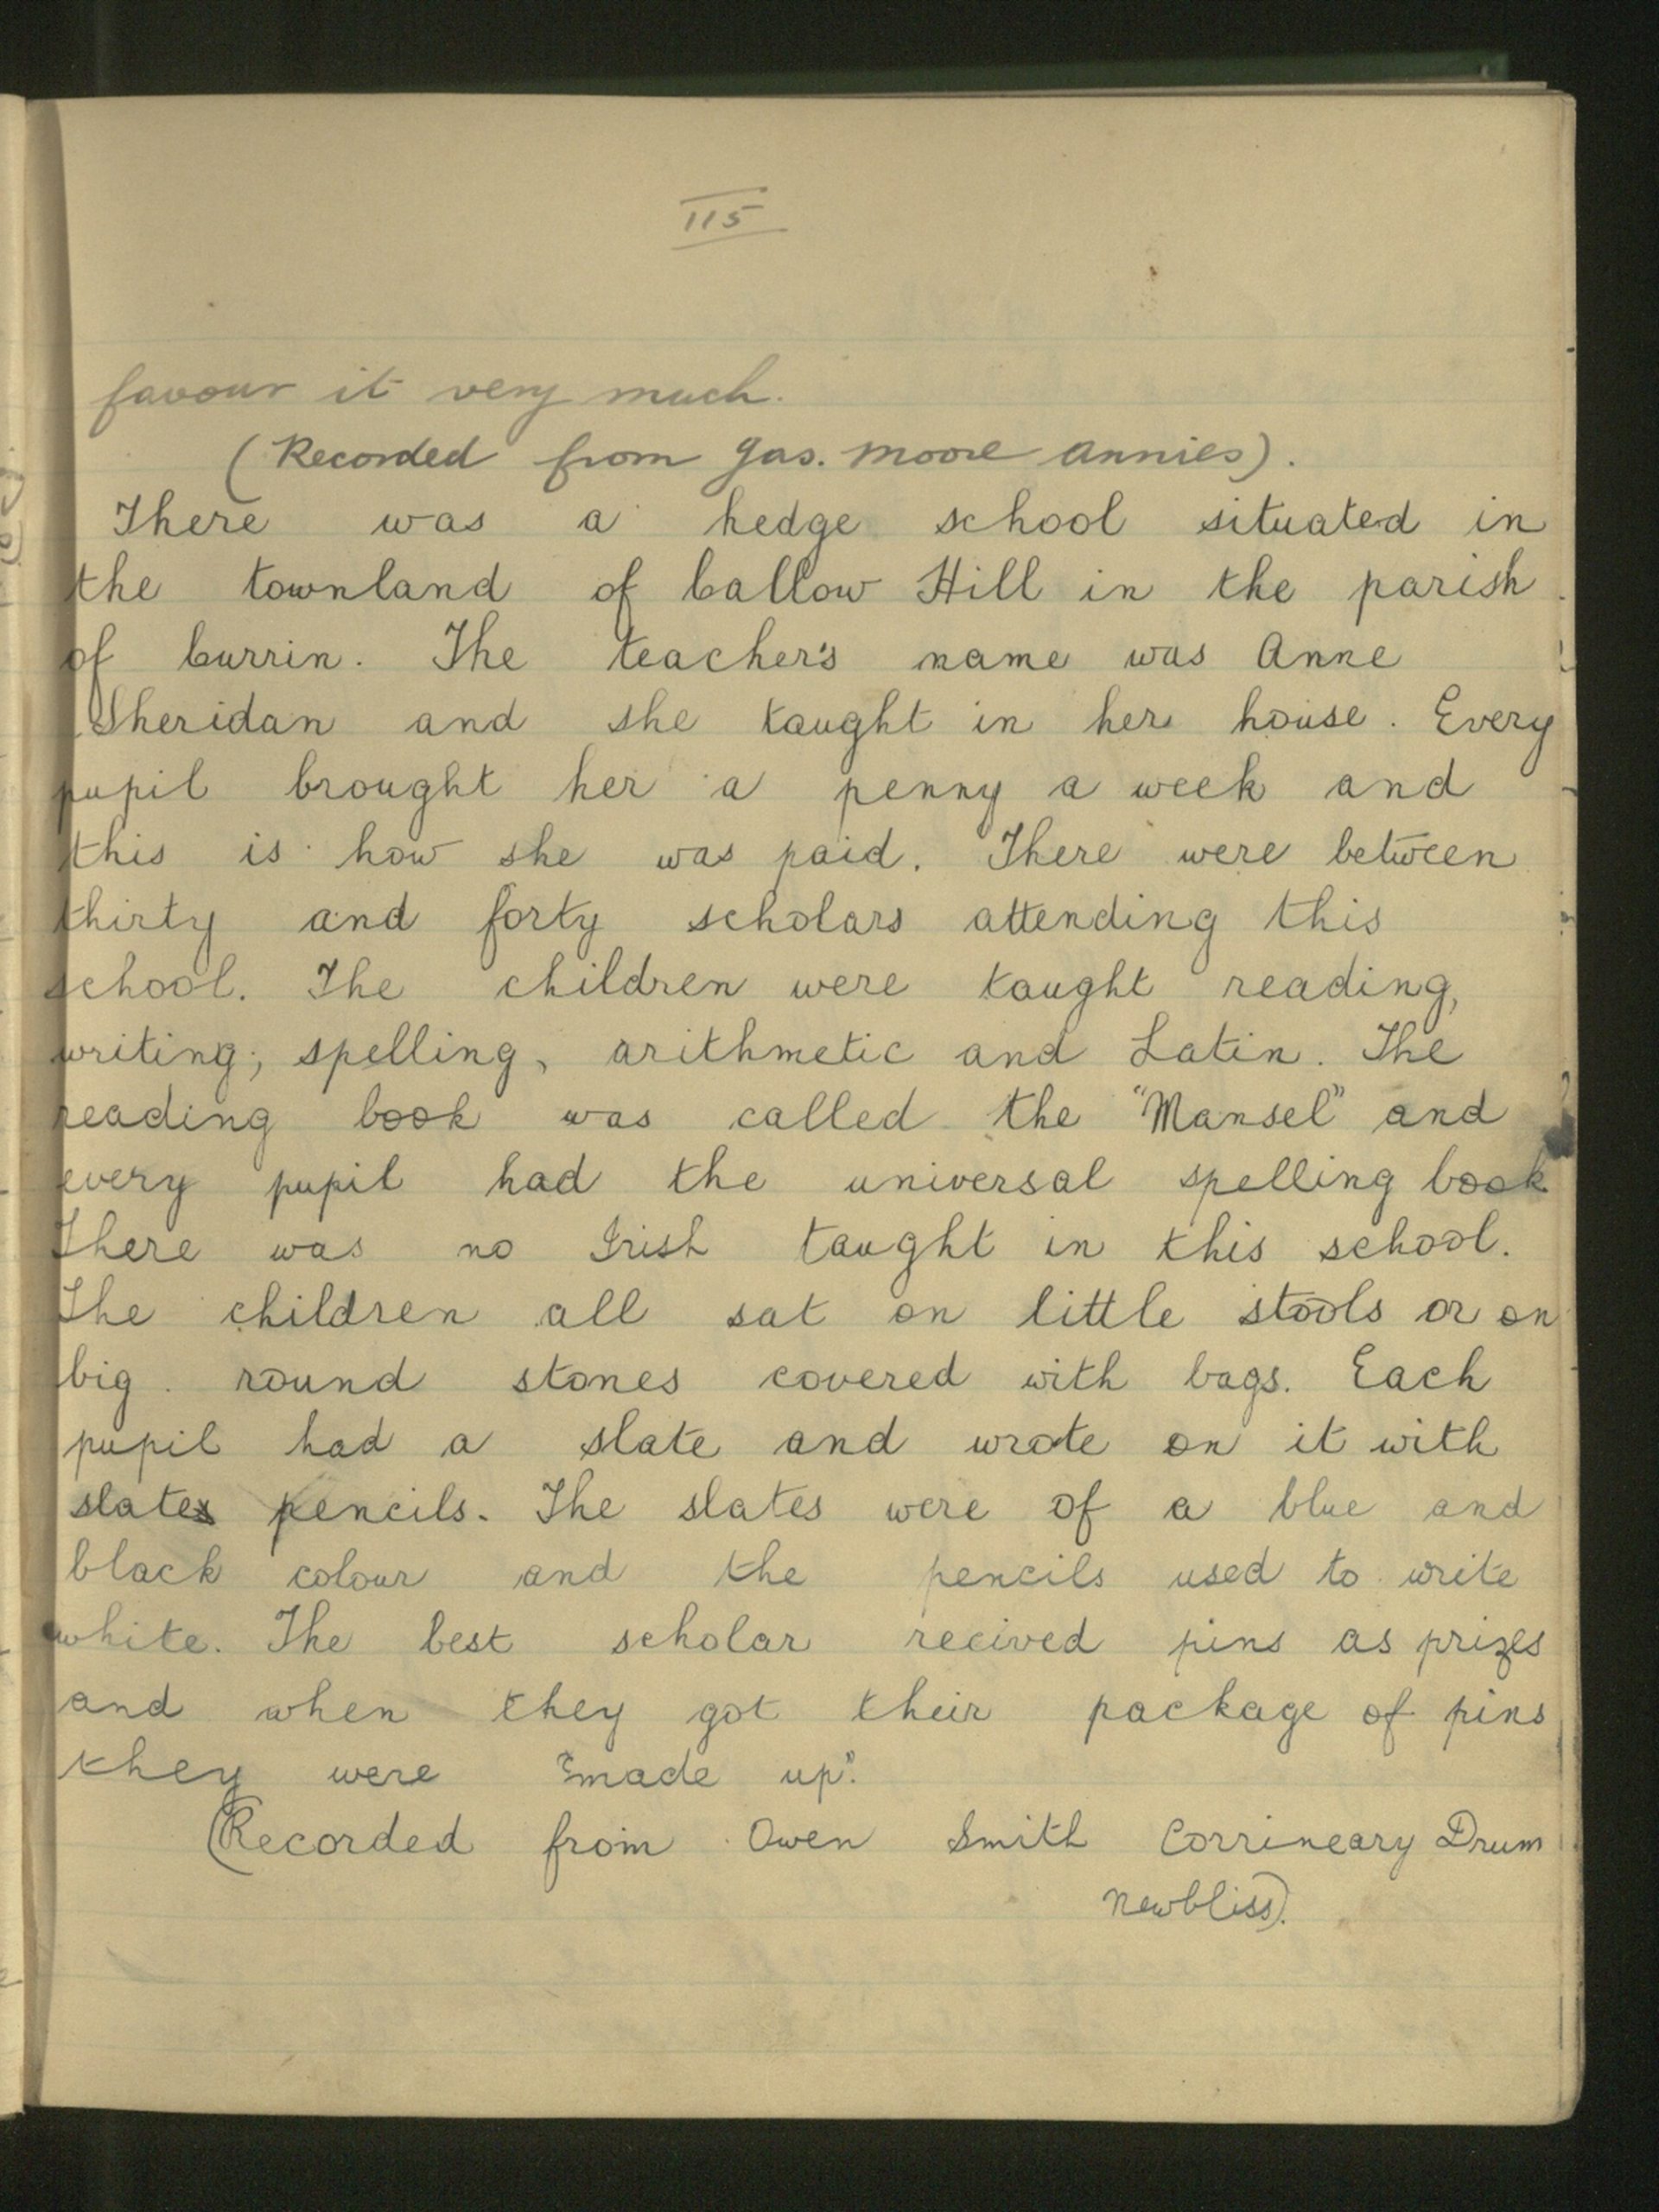 115
favour it very much.
(Recorded from Jas. Moore Annies).
There was a hedge school situated in
the townland of Callow Hill in the parish
of Currin. The teacher's name was Anne
Sheridan and she taught in her house. Every
pupil brought her a penny a week and
this is how she was paid. There were between
thirty and forty scholars attending this
school. The children were taught reading,
writing, spelling, arithmetic and Latin. The
reading book was called the "Mansel" and
every pupil had the universal spelling book
There was no Irish taught in this school.
The children all sat on little stools or on
big round stones covered with bags. Each
pupil had a slate and wrote on it with
slates pencils. The slates were of a blue and
black colour and the pencils used to write
white. The best scholar recived pins as prizes
and when they got their package of pins
they were "made up".
(Recorded from Owen Smith Corrineary Drum
Newbliss).